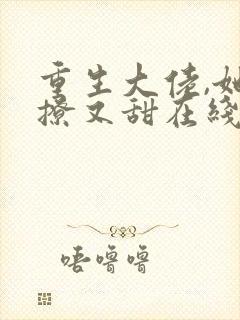 重生大佬,她
撩又甜在线
唔噜噜